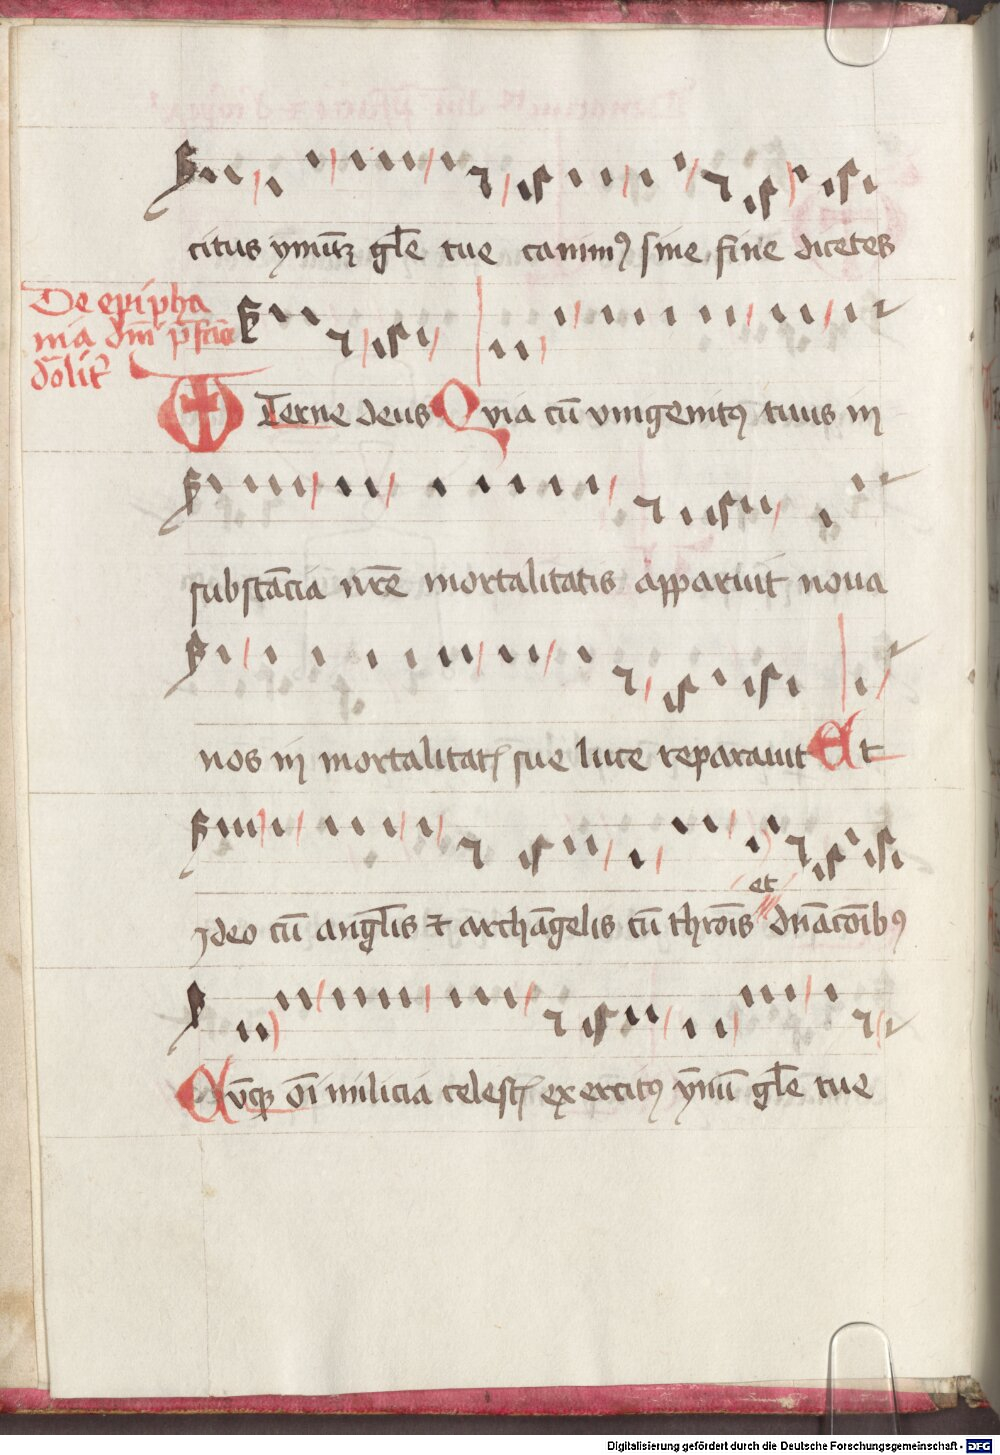 citus ymnūꝫ gl̄e tue canimꝰ sine fine dicētes
De epipha
nia dn̄i p̄facio
Eterne deus Quia cū vnigenitꝰ tuus in
substācia nr̄e mortalitatis apparuit noua
nos in mortalitatꝭ sue luce reparauit Et
et
ideo cū angl̄is et archāgelis cū thronīs dnācōibꝰ
Cūqꝫ oī milicia celestꝭ exercitꝰ ymnū gl̄e tue
Digitalisierung gefördert durch die Deutsche Forschungsgemeinschaft - DFG